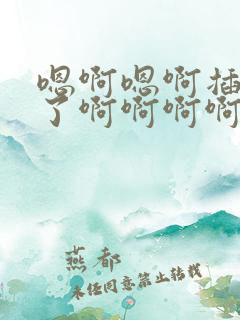 嗯啊嗯啊插
了啊啊啊啊
燕都
未经同意禁止转载